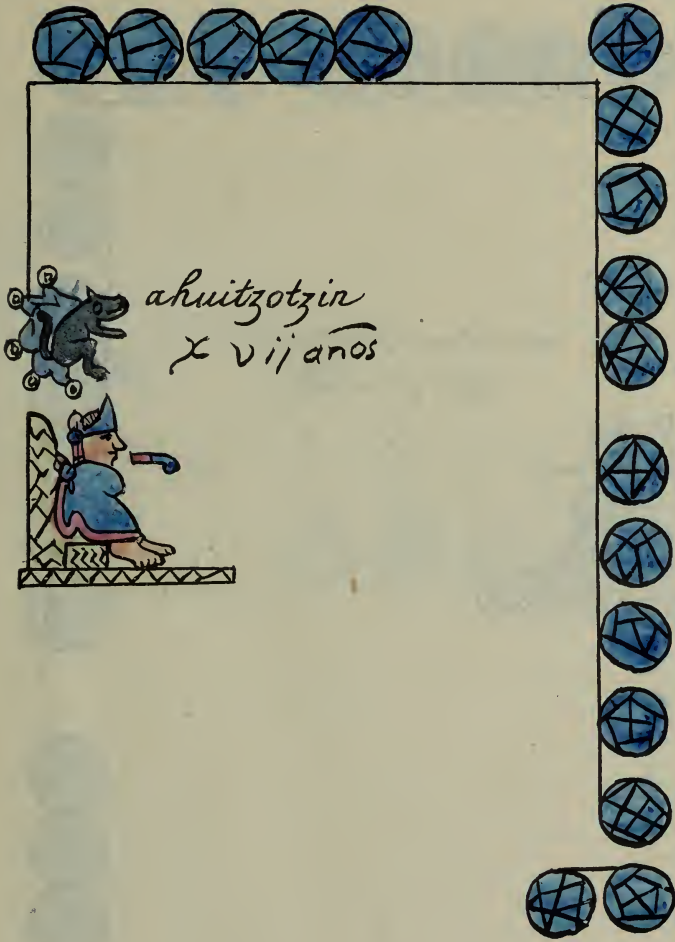 ahuitzotzin
x vij años